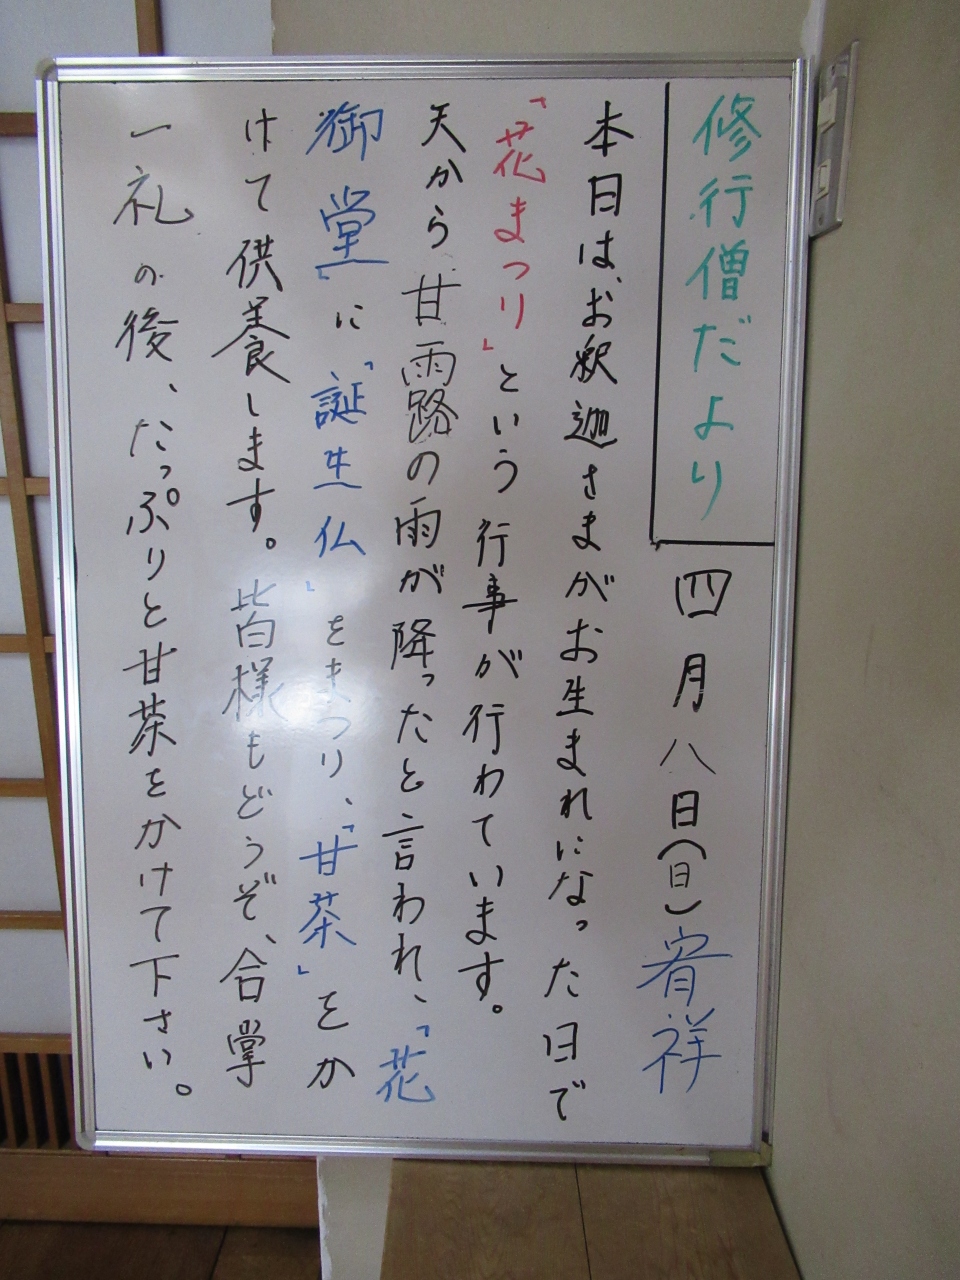 修行僧だより
四月八日(日)宥祥
本日は、お釈迦さまがお生まれになった日で
「花まつり」という行事が行わています。
天から甘露の雨が降ったと言われ、「花
御堂」に「誕生仏」をまつり、「甘茶」をか
けて供養します。皆様もどうぞ、合掌
一礼の後、たっぷりと甘茶をかけて下さい。